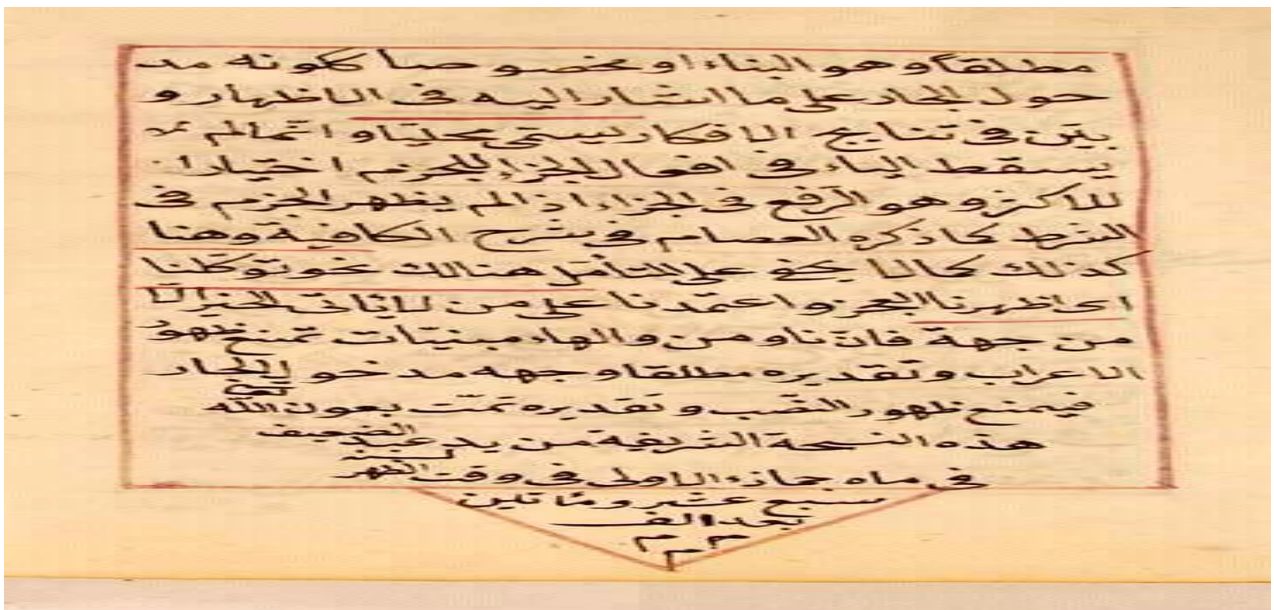 مطلقا وهو البناء او مخصوصا ككونه مد
خول الجار على ما اشار اليه فى الاظهار و
بيّن فى نتايج الافكار ليسمّى محليّا و انّما لم
يسقط الياء فى افعال الجزاء للجزم اختيارا
للاكثر وهو الرّفع فى الجزاء اذا لم يظهر الجزم فى
الشرط كما ذكره العصام فى شرح الكافية وهنا
كذلك كما لا يخفى على المتأمل هنالك نحو توكّلنا
اى اظهرنا العجز و اعتمدنا على من لا يأتى الخير الّا
من جهة فانّ نا و من و الهاء مبنيّات تمنع ظهور
الاعراب و تقديره مطلقا وجهه مدخول الجار
فيمنع ظهور النّصب و تقديره تمّت بعون اللّه
هذه النسخة الشريفة من يد عبد الضعيف
فى ماه جماذه الاولى فى وقت الظهر
سبع عشر و مأتين
بعد الف
م م م